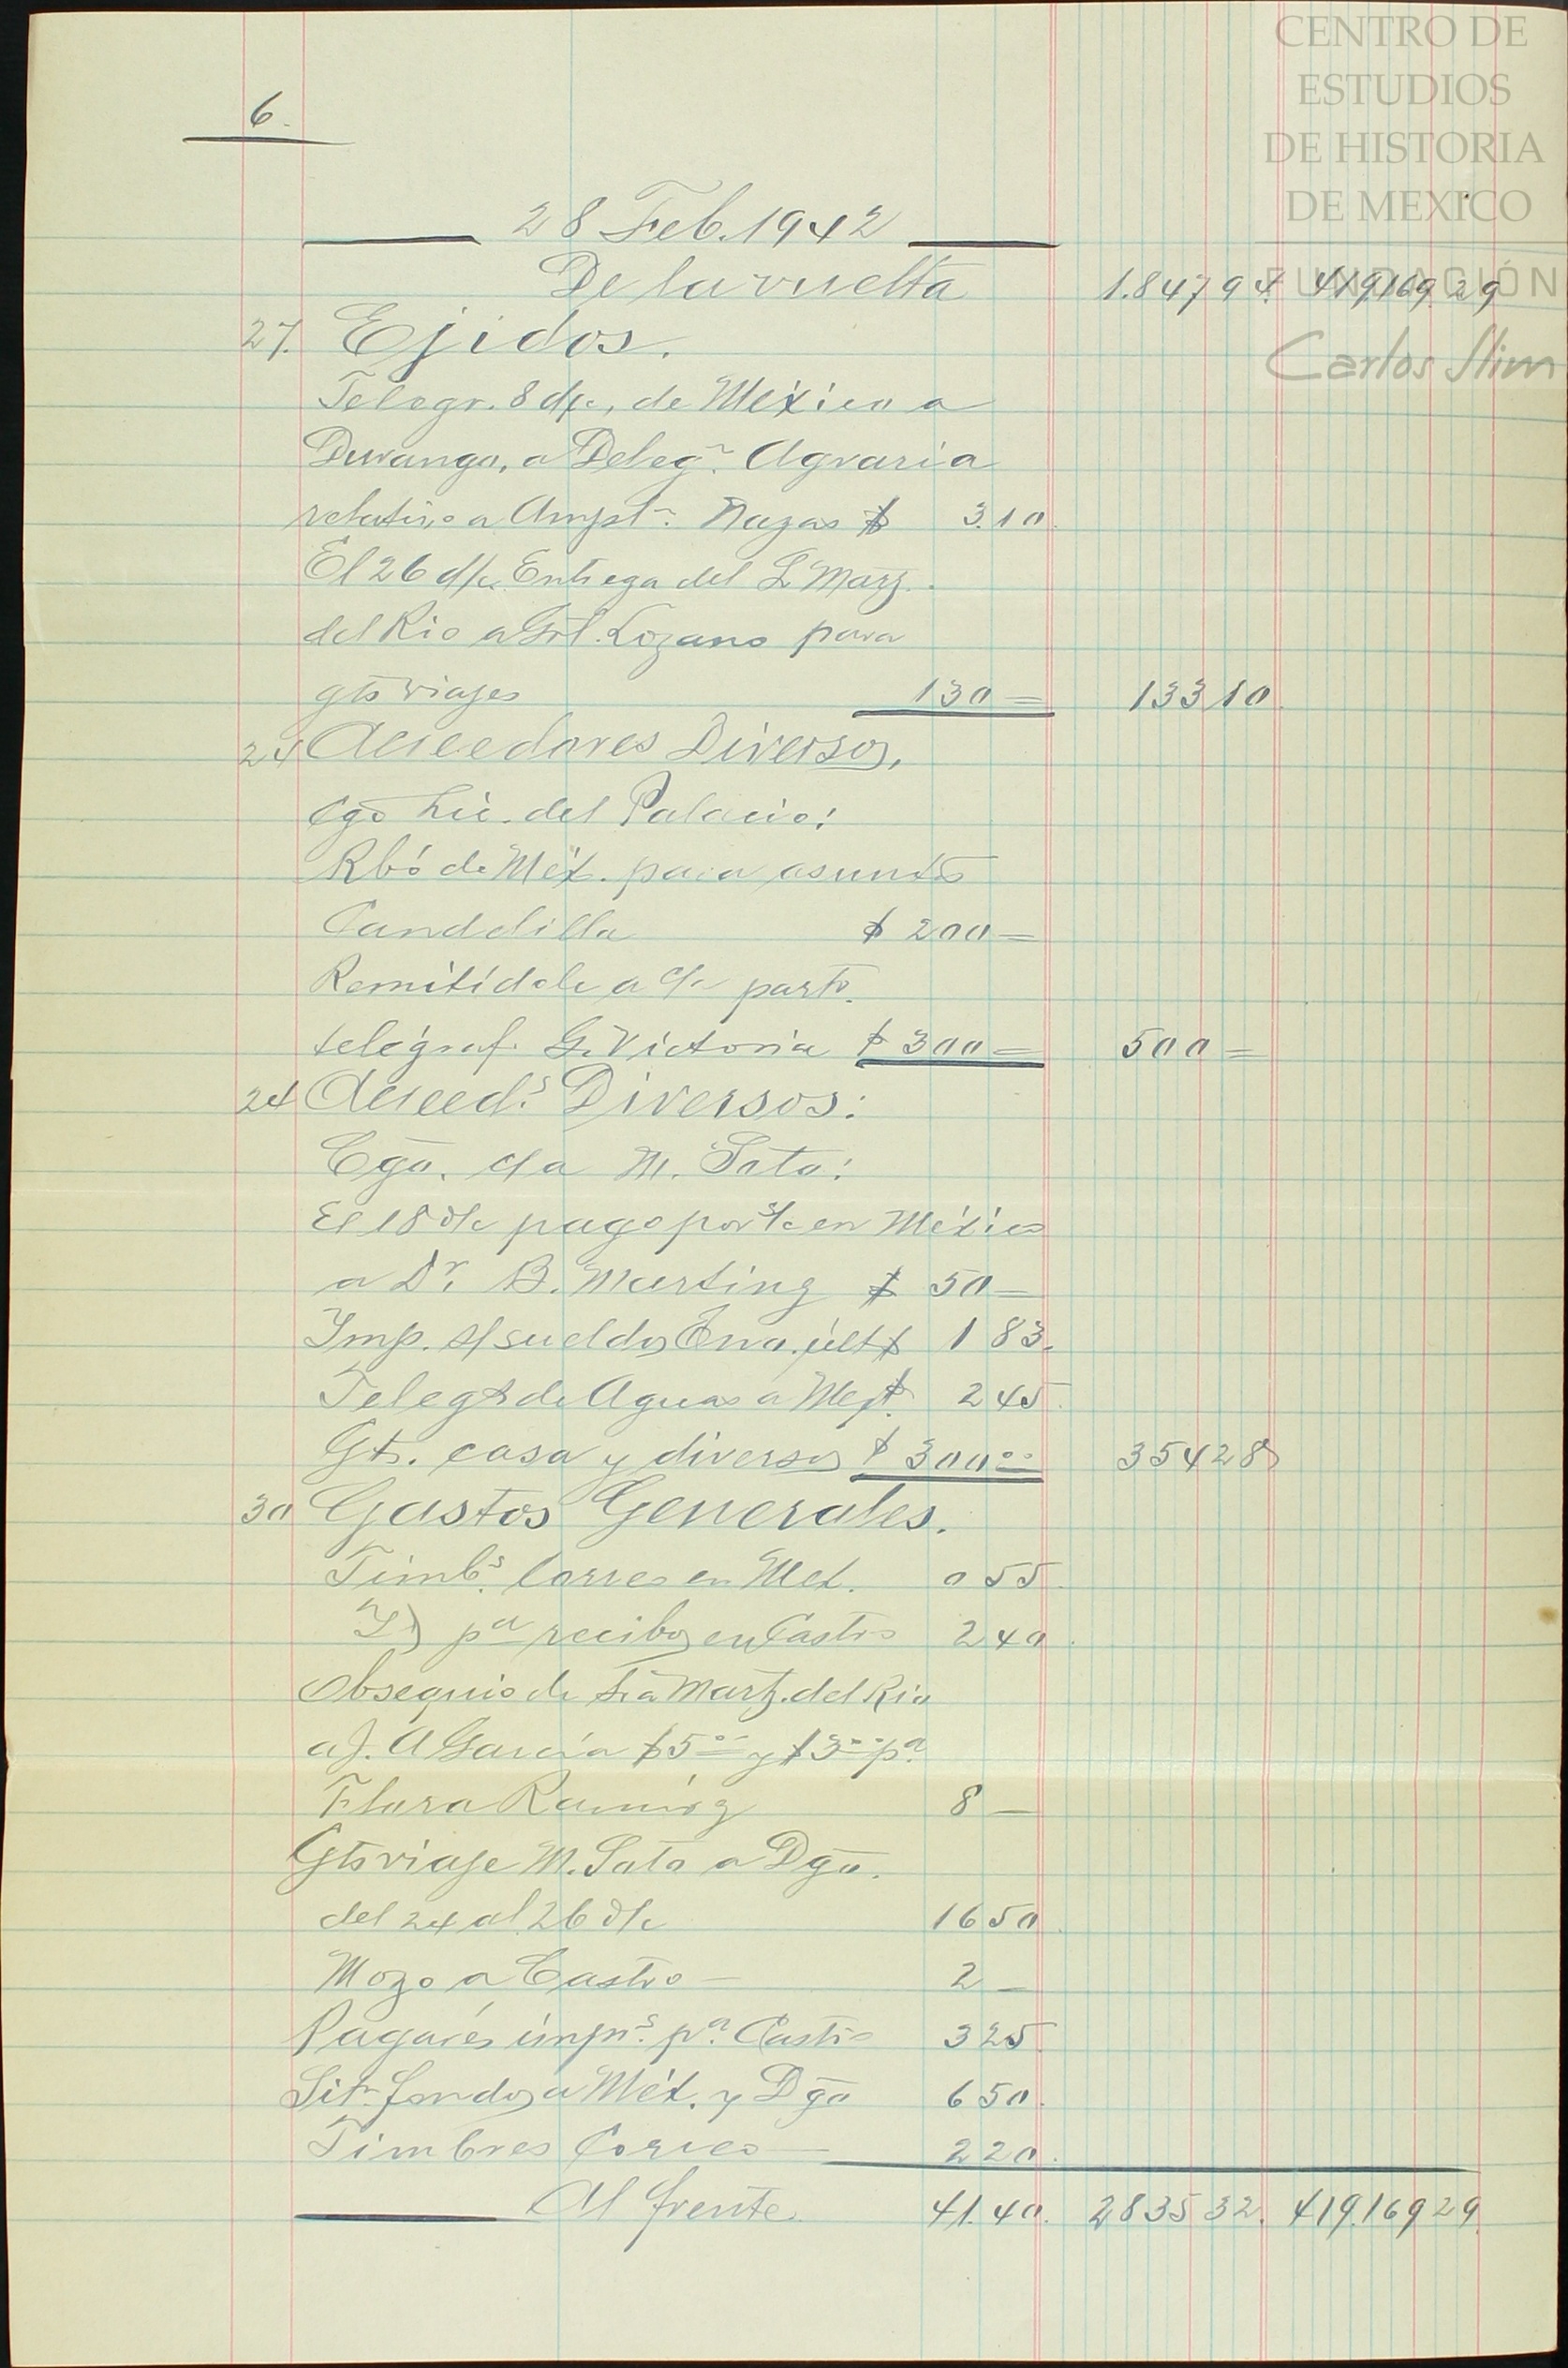 CENTRO DE
ESTUDIOS
DE HISTORIA
DE MEXICO
FUNDACIÓN
Carlos Slim
6.
28 Feb. 1942
De la vuelta 1.847 94. 419,169 29
27. Ejidos.
Telegr. 8 d/c, de México a
Durango, a Delegn. Agraria
relativo a Ampln. Nazas $ 3.10.
El 26 d/c. Entrega del L Marz.
del Rio a Gril. Lozano para
gts viajes 130 = 133 10.
24 Acreedores Diversos,
Cgo Lic. del Palacio:
Rbó de Méx. para asunto
Candelilla $ 200 =
Remitídole a c/c parto.
telégraf. G. Victoria $ 300 = 500 =
24 Acreeds. Diversos:
Cgo. c/a M. Soto:
El 18 d/c pago por s/c en México
a Dr. B. Martinz $ 50 —
Imp. s/ sueldos Ero. últ $ 1 83.
Telegs de Aguas a Mex $ 2 45.
Gts. casa y diversos $ 300 00 354 28
30 Gastos Generales.
Timbs. Correo en Mex. 0 55.
Id pa recibos en Castro 2 40.
Obsequio de Sra Martz. del Rio
a J. A García $5 00 y $3 00 pa.
Flora Ramírz 8 —
Gts viaje M. Soto a Dgo.
del 24 al 26 d/c 16 50.
Mozo a Castro — 2 —
Pagarés imprs. pa. Castro 3 25.
Sitn fondos a Méx. y Dgo 6 50.
Timbres Correo — 2 20.
Al frente 41.40. 2835 32. 419,169 29.